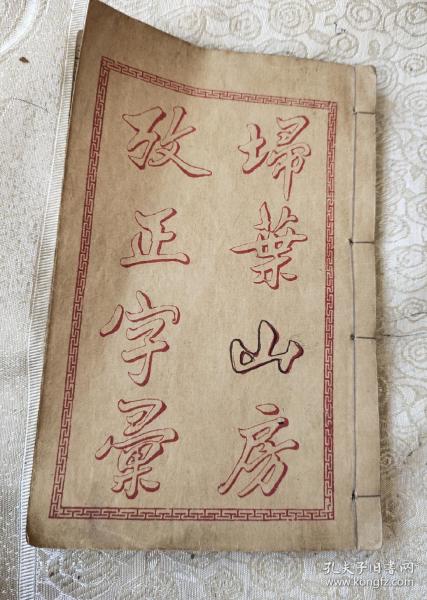 埽葉山房
攷正字彙
孔夫子旧书网
www.kongfz.com